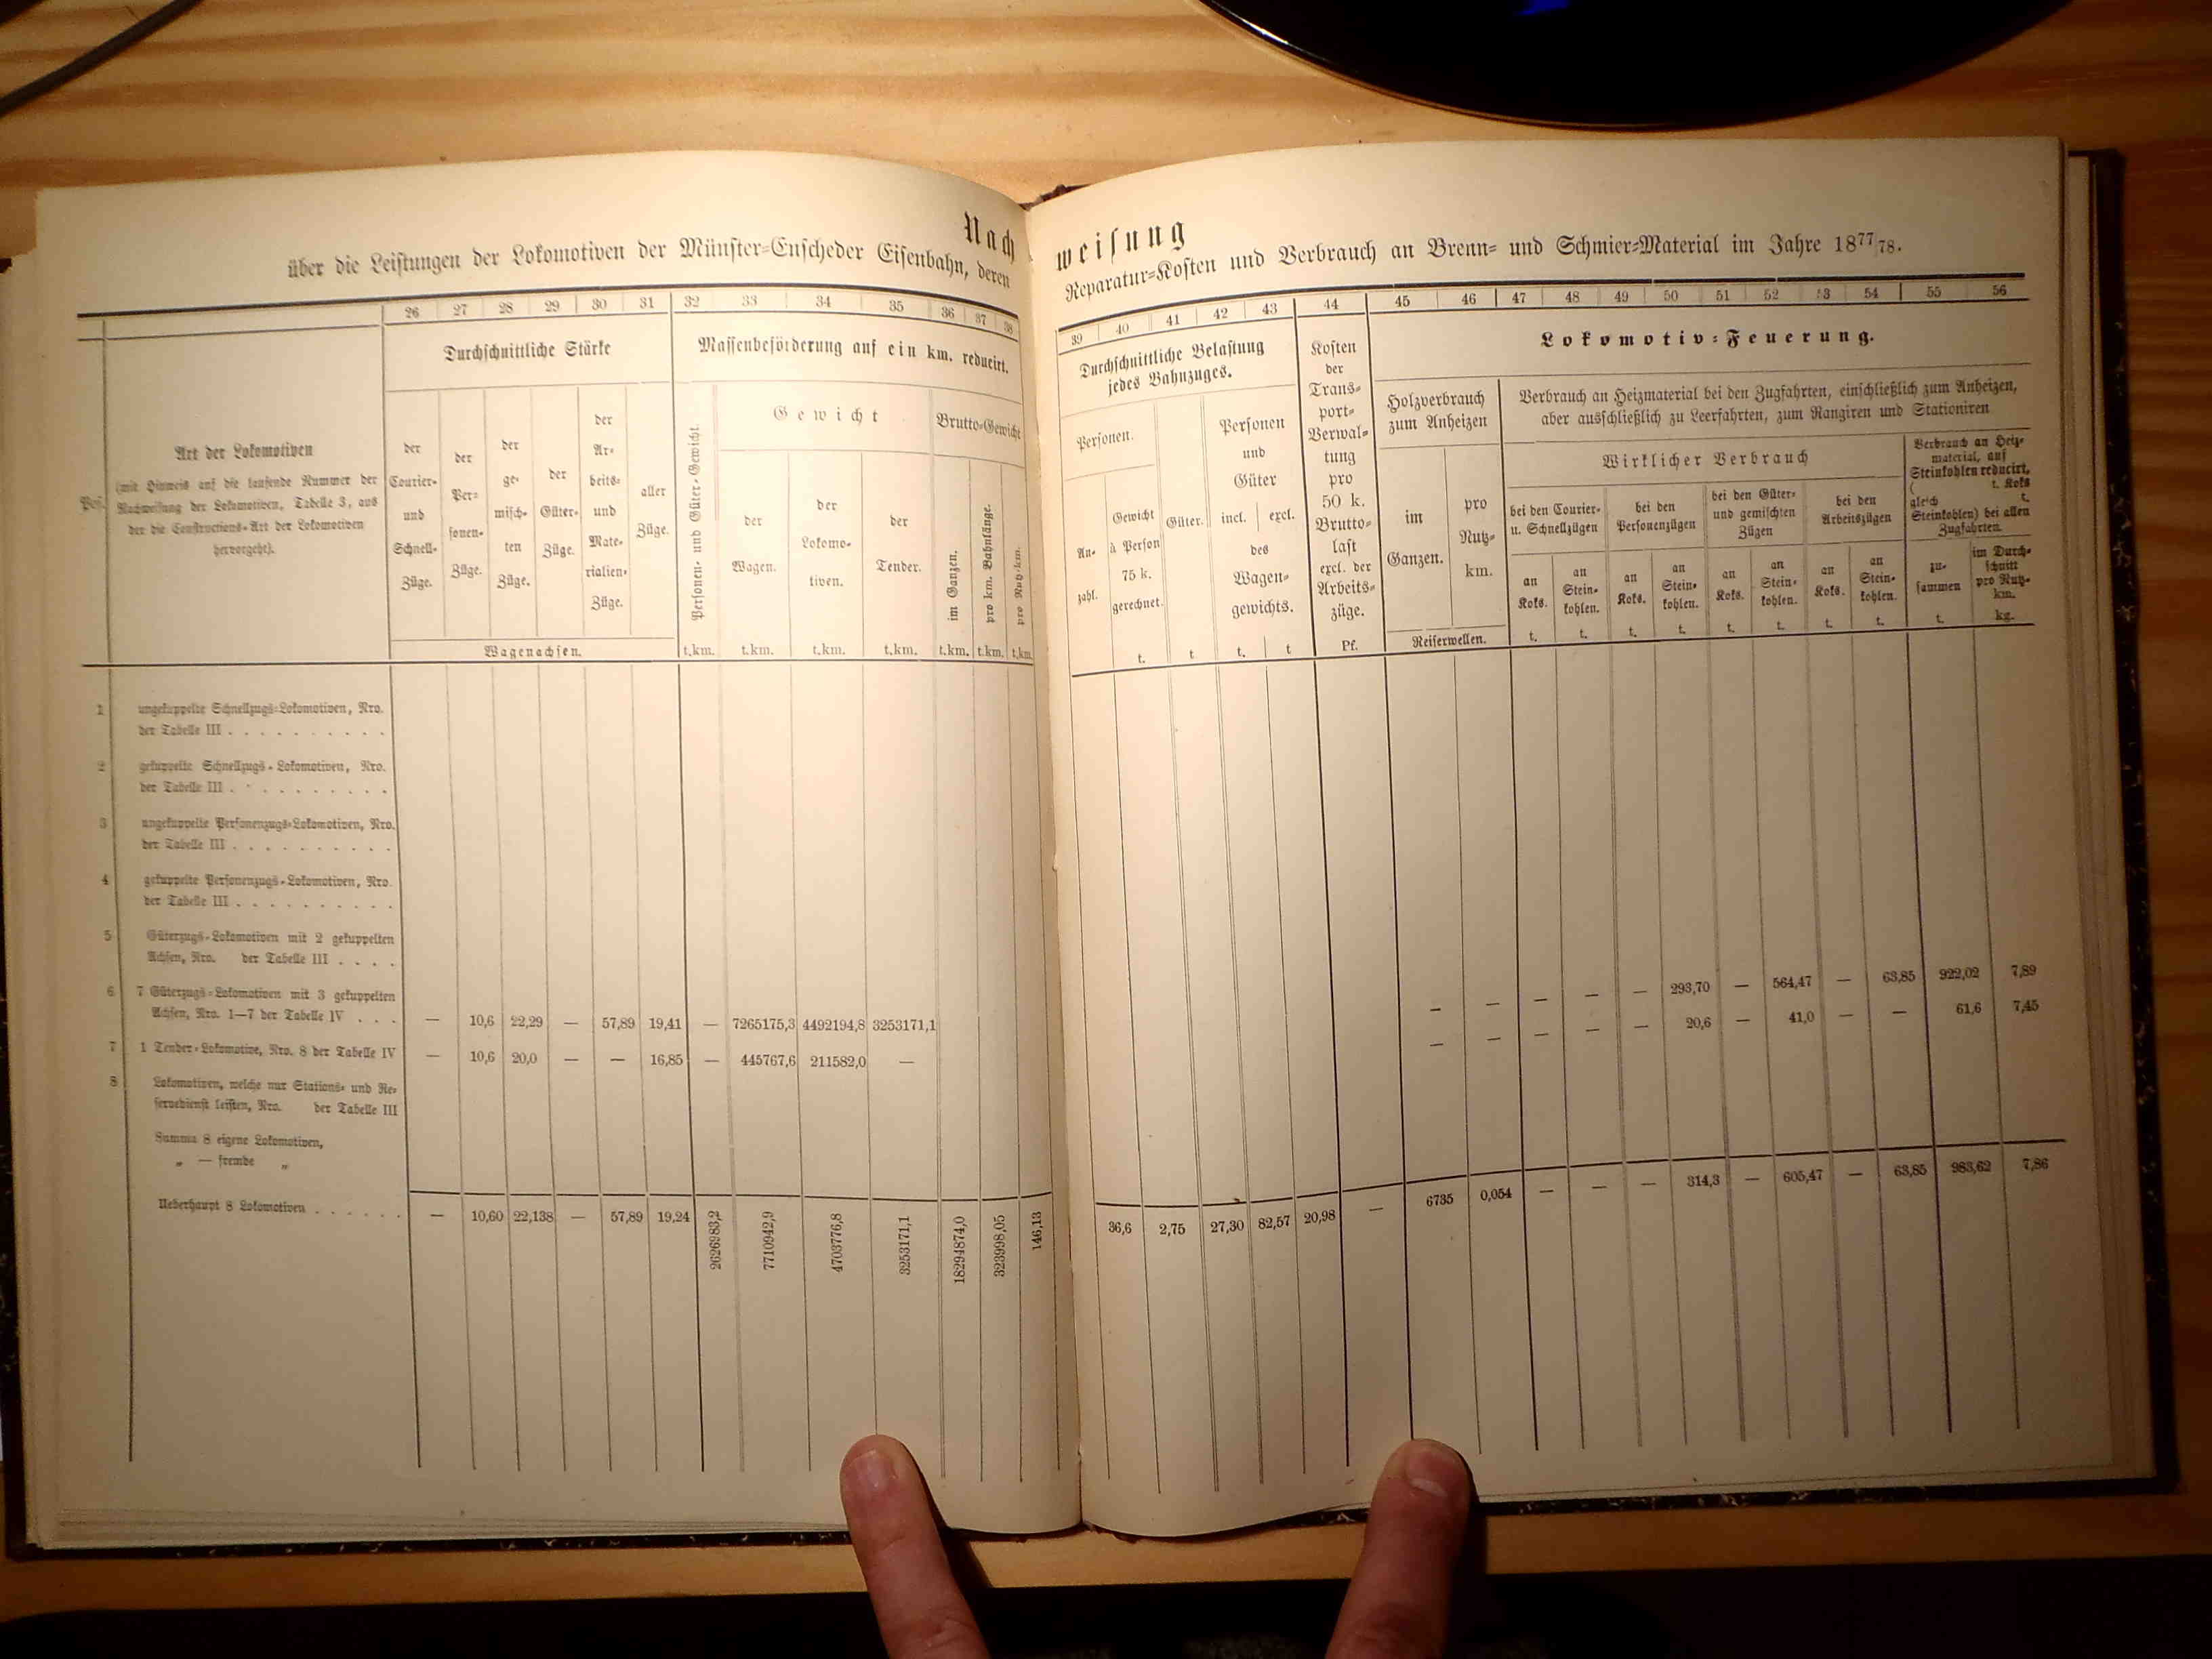 Nachweisung
über die Leistungen der Lokomotiven der Münster-Enscheder Eisenbahn, deren Reparatur-Kosten und Verbrauch an Brenn- und Schmier-Material im Jahre 1877/78.
26 27 28 29 30 31 32 33 34 35 36 37 38
Pos.
Art der Lokomotiven
(mit Hinweis auf die laufende Nummer der
Nachweisung der Lokomotiven, Tabelle 3, aus
der die Constructions-Art der Lokomotiven
hervorgeht).
Durchschnittliche Stärke
der
Courier-
und
Schnell-
Züge.
der
Per-
sonen-
Züge.
der
ge-
misch-
ten
Züge.
der
Güter-
Züge.
der
Ar-
beits-
und
Mate-
rialien-
Züge.
aller
Züge.
Wagenachsen.
Massenbeförderung auf ein km. reducirt.
Personen- und Güter-Gewicht.
Gewicht
der
Wagen.
der
Lokomo-
tiven.
der
Tender.
Brutto-Gewicht
im Ganzen.
pro km. Bahnlänge.
pro Nutz-km.
t.km. t.km. t.km. t.km. t.km. t.km. t.km.
1 ungekuppelte Schnellzugs-Lokomotiven, Nro.
der Tabelle III . . . . . . . . . .
2 gekuppelte Schnellzugs-Lokomotiven, Nro.
der Tabelle III . . . . . . . . . .
3 ungekuppelte Personenzugs-Lokomotiven, Nro.
der Tabelle III . . . . . . . . . .
4 gekuppelte Personenzugs-Lokomotiven, Nro.
der Tabelle III . . . . . . . . . .
5 Güterzugs-Lokomotiven mit 2 gekuppelten
Achsen, Nro. der Tabelle III . . . .
6 7 Güterzugs-Lokomotiven mit 3 gekuppelten
Achsen, Nro. 1—7 der Tabelle IV . . . — 10,6 22,29 — 57,89 19,41 — 7265175,3 4492194,8 3253171,1
7 1 Tender-Lokomotive, Nro. 8 der Tabelle IV — 10,6 20,0 — — 16,85 — 445767,6 211582,0 —
8 Lokomotiven, welche nur Stations- und Re-
servedienst leisten, Nro. der Tabelle III
Summa 8 eigene Lokomotiven,
„ — fremde „
Ueberhaupt 8 Lokomotiven . . . . . . — 10,60 22,138 — 57,89 19,24 2626983,2 7710942,9 4703776,8 3253171,1 18294874,0 323998,05 146,13
39 40 41 42 43 44 45 46 47 48 49 50 51 52 53 54 55 56
Durchschnittliche Belastung
jedes Bahnzuges.
Personen.
An-
zahl.
Gewicht
à Person
75 k.
gerechnet.
t.
Güter.
t
Personen
und
Güter
incl. excl.
des
Wagen-
gewichts.
t. t
Kosten
der
Trans-
port-
Verwal-
tung
pro
50 k.
Brutto-
last
excl. der
Arbeits-
züge.
Pf.
Lokomotiv-Feuerung.
Holzverbrauch
zum Anheizen
im
Ganzen.
pro
Nutz-
km.
Reiserwellen.
Verbrauch an Heizmaterial bei den Zugfahrten, einschließlich zum Anheizen,
aber ausschließlich zu Leerfahrten, zum Rangiren und Stationiren
Wirklicher Verbrauch
bei den Courier-
u. Schnellzügen
bei den
Personenzügen
bei den Güter-
und gemischten
Zügen
bei den
Arbeitszügen
an
Koks.
an
Stein-
kohlen.
an
Koks.
an
Stein-
kohlen.
an
Koks.
an
Stein-
kohlen.
an
Koks.
an
Stein-
kohlen.
t. t. t. t. t. t. t. t.
Verbrauch an Heiz-
material, auf
Steinkohlen reducirt,
( t. Koks
gleich t.
Steinkohlen) bei allen
Zugfahrten.
zu-
sammen
t.
im Durch-
schnitt
pro Nutz-
km.
kg.
— — — — — 293,70 — 564,47 — 63,85 922,02 7,89
— — — — — 20,6 — 41,0 — — 61,6 7,45
36,6 2,75 27,30 82,57 20,98 — 6735 0,054 — — — 314,3 — 605,47 — 63,85 983,62 7,86